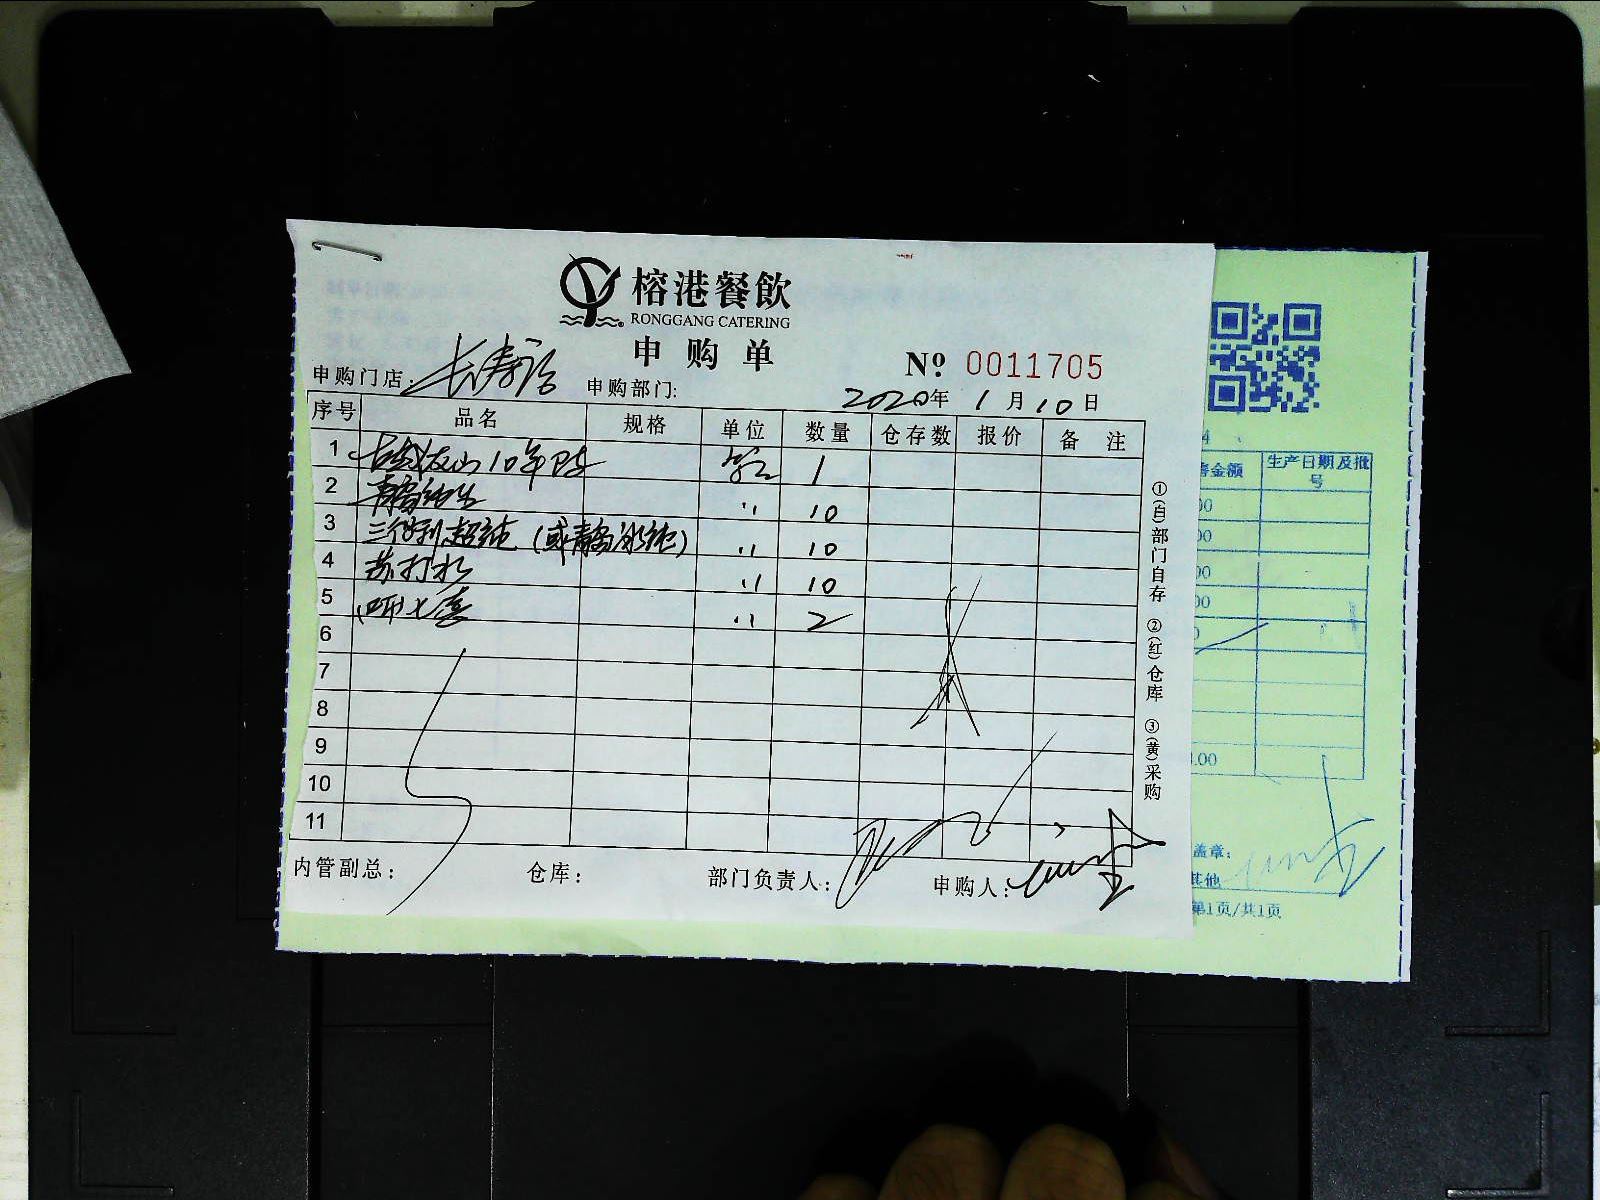 榕港餐飲
RONGGANG CATERING
申购单
Nº 0011705
申购门店: 长寿路 申购部门: 2020年 1月10日
序号 品名 规格 单位 数量 仓存数 报价 备注
1 古越龙山10年陈 箱 1
2 青岛纯生 〃 10
3 三得利超纯(或青岛冰纯) 〃 10
4 苏打水 〃 10
5 七喜 〃 2
6
7
8
9
10
11
内管副总: 仓库: 部门负责人: 申购人:
①(白)部门自存 ②(红)仓库 ③(黄)采购
金额 生产日期及批号
00
00
00
00
0
.00
盖章:
其他
第1页/共1页